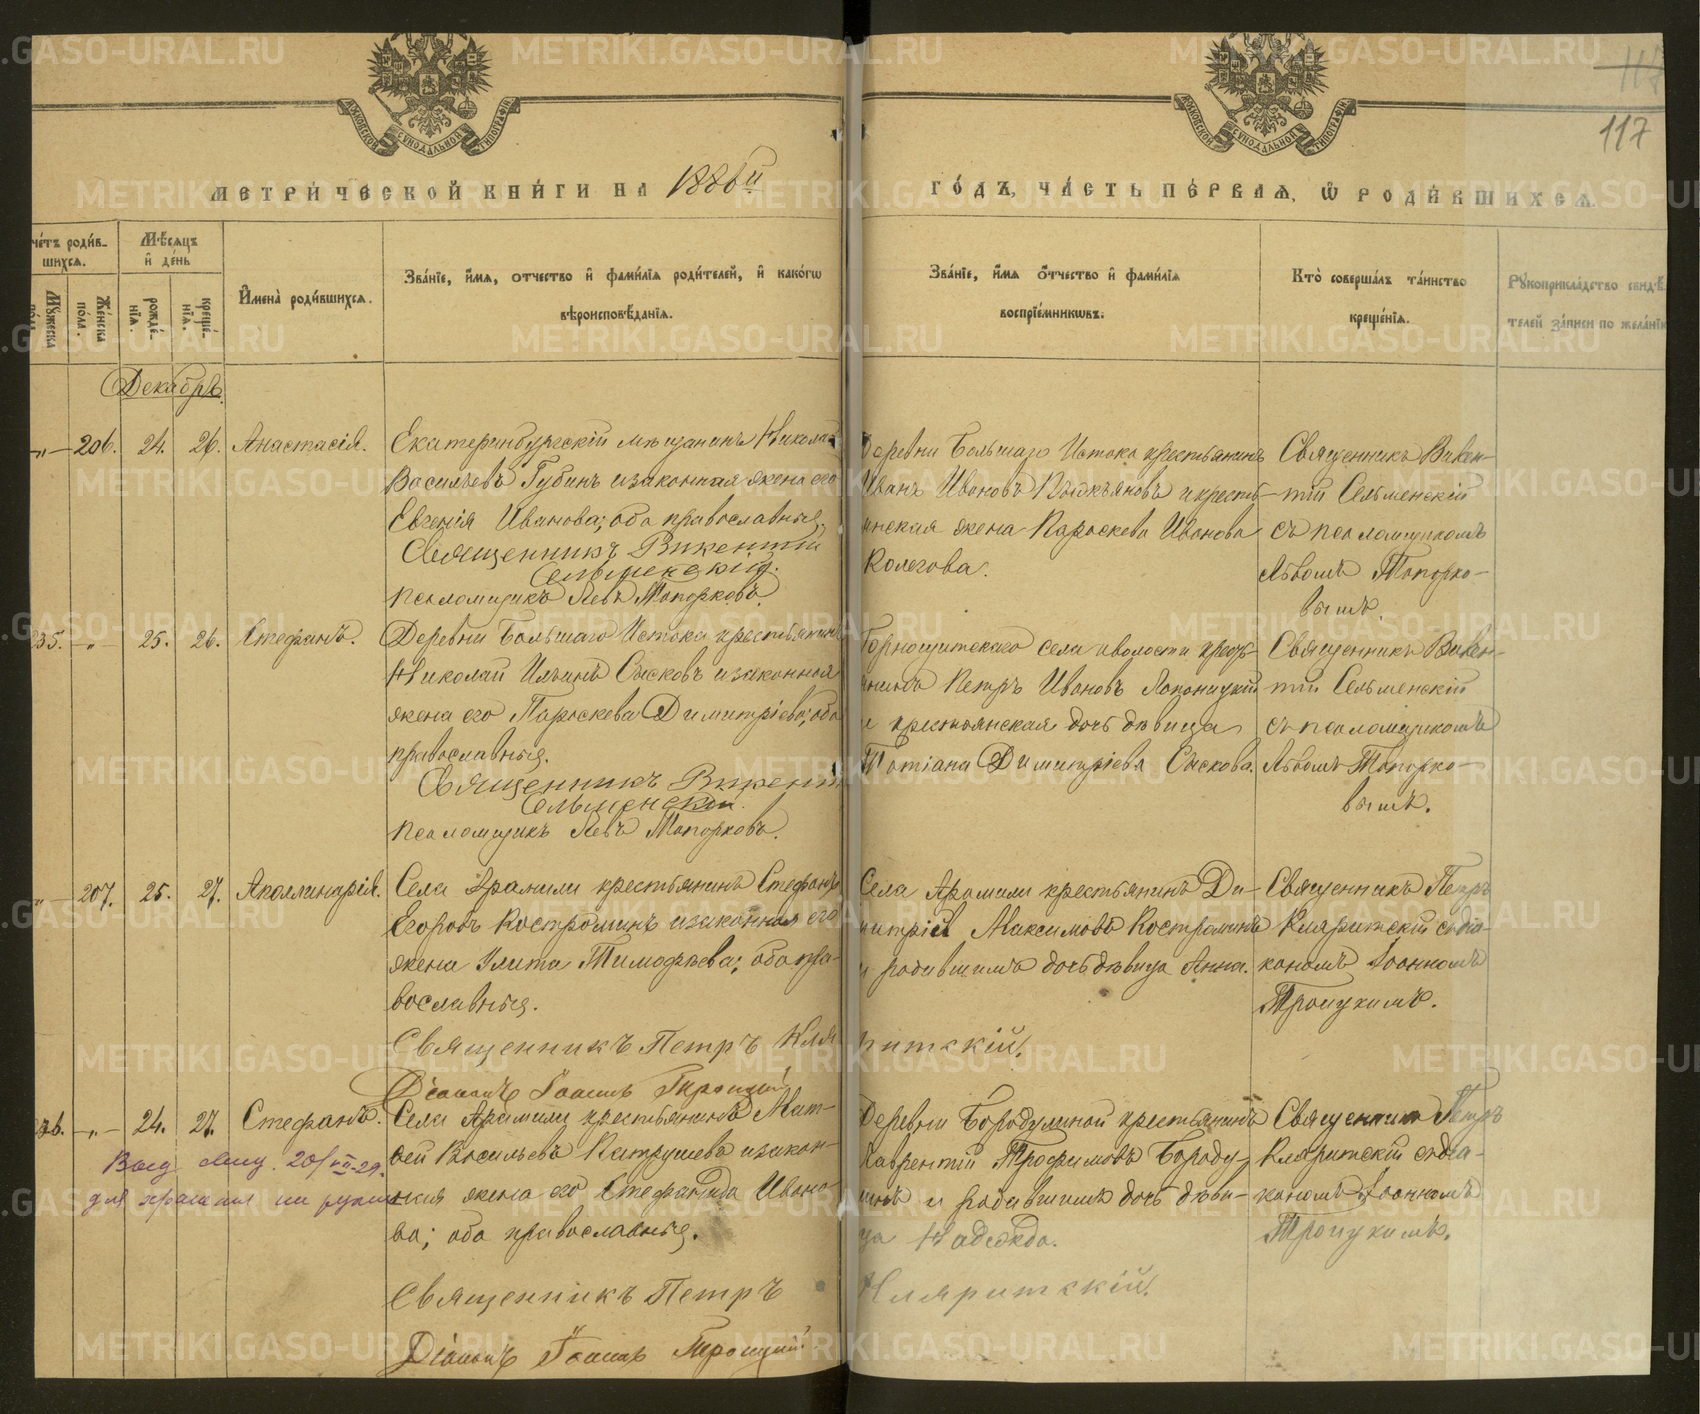 117
МЕТРИ́ЧЕСКОЙ КНИ́ГИ НА 1886й
ГО́ДЪ, ЧА́СТЬ ПЕ́РВАѦ, Ѽ РОДИ́ВШИХСѦ.
чéтъ роди́в-
шихсѧ.
Му́жеска
по́ла.
Же́нска
по́ла.
Мѣ́сѧцъ
и҆ де́нь
рожде́-
нїѧ.
креще́-
нїѧ.
И҆мена̀ роди́вшихсѧ.
Зва́нїе, и҆́мѧ, о҆́тчество и҆ фами́лїѧ роди́телей, и҆ како́гѡ
вѣроисповѣ́данїѧ.
Зва́нїе, и҆́мѧ о҆́тчество и҆ фами́лїѧ
воспрїе́мникѡвъ.
Кто̀ соверша́лъ та́инство
креще́нїѧ.
Рꙋкоприкла́дство свидѣ́-
телей за́писи по жела́нїю
Декабрь.
" 206. 24. 26. Анастасія.
Екатеринбургскій мѣщанинъ Николай
Васильевъ Губинъ и законная жена его
Евгенія Иванова; оба православныя.
Священникъ Викентій
Сельменскій.
Псаломщикъ Левъ Топорковъ.
Деревни Большаго Истока крестьянинъ
Иванъ Ивановъ и кресть-
янская жена Параскева Иванова
Колегова.
Священникъ Викен-
тій Сельменскій
съ псаломщикомъ
Львомъ Топорко-
вымъ.
235. " 25. 26. Стефанъ.
Деревни Большаго Истока крестьянинъ
Николай Ильинъ Сысковъ и законная
жена его Параскева Димитріева; оба
православныя.
Священникъ Викентій
Сельменскій.
Псаломщикъ Левъ Топорковъ.
Горнощитскаго села и волости кресть-
янинъ Петръ Ивановъ
и крестьянская дочь дѣвица
Татіана Димитріева Сыскова.
Священникъ Викен-
тій Сельменскій
съ псаломщикомъ
Львомъ Топорко-
вымъ.
" 207. 25. 27. Аполлинарія.
Села Арамили крестьянинъ Стефанъ
Егоровъ Костроминъ и законная его
жена Улита Тимофѣева; оба пра-
вославныя.
Священникъ Петръ Кляритскій.
Діаконъ Іоаннъ Троицкій
Села Арамили крестьянинъ Ди-
митрій Максимовъ Костроминъ
и родившимъ дочь дѣвица Анна.
Священникъ Петръ
Кляритскій съ діа-
кономъ Іоанномъ
Троицкимъ.
236. " 24. 27. Стефанъ.
Села Арамили крестьянинъ Мат-
ѳей Васильевъ Патрушевъ и закон-
ная жена его Стефанида Ивано-
ва; оба православныя.
Священникъ Петръ Кляритскій.
Діаконъ Іоаннъ Троицкій
Деревни Бородулиной крестьянинъ
Лаврентій Трофимовъ Бороду-
линъ и родившимъ дочь дѣви-
ца Надежда.
Священникъ Петръ
Кляритскій съ діа-
кономъ Іоанномъ
Троицкимъ.
METRIKI.GASO-URAL.RU